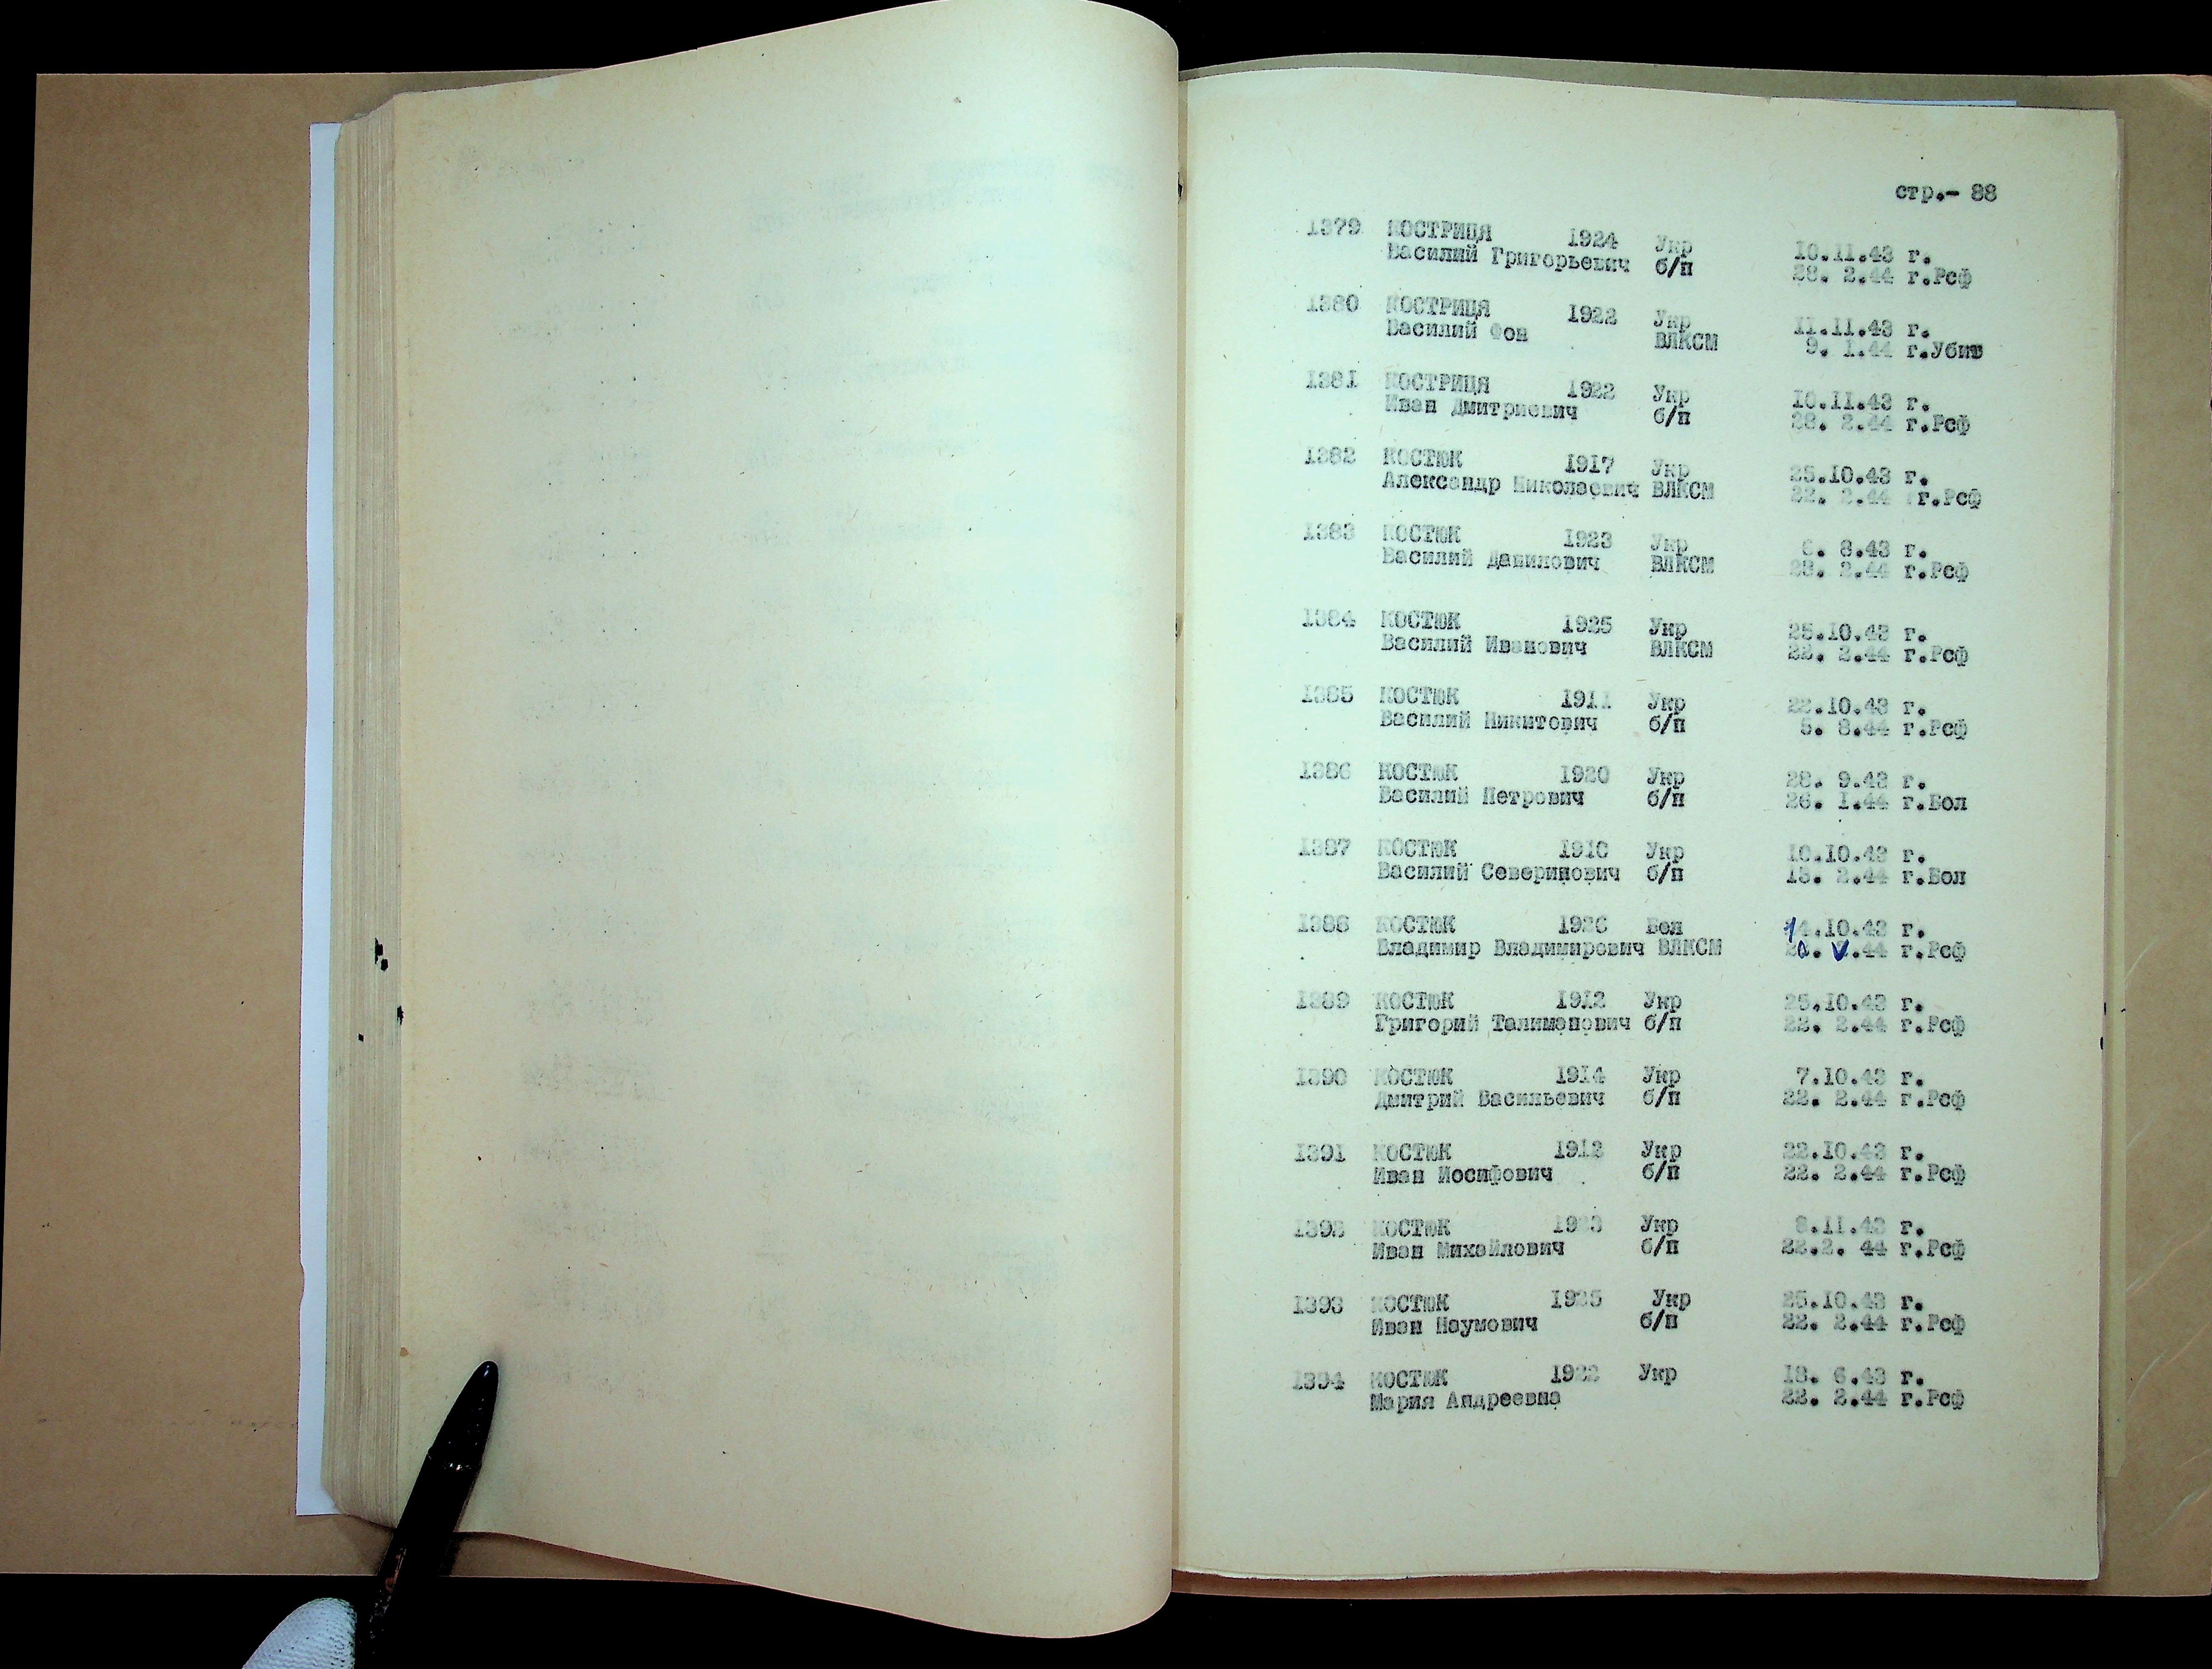 стр.- 88
1379 КОСТРИЦЯ 1924 Укр 10.11.43 г.
Василий Григорьевич б/п 28. 2.44 г.Рсф
1380 КОСТРИЦЯ 1922 Укр 11.11.43 г.
Василий Фон ВЛКСМ 9. 1.44 г.Убит
1381 КОСТРИЦЯ 1922 Укр 10.11.43 г.
Иван Дмитриевич б/п 28. 2.44 г.Рсф
1382 КОСТЮК 1917 Укр 25.10.43 г.
Александр Николаевич ВЛКСМ 22. 2.44 г.Рсф
1383 КОСТЮК 1923 Укр 6. 8.43 г.
Василий Данилович ВЛКСМ 23. 2.44 г.Рсф
1384 КОСТЮК 1925 Укр 25.10.43 г.
Василий Иванович ВЛКСМ 22. 2.44 г.Рсф
1385 КОСТЮК 1911 Укр 22.10.43 г.
Василий Никитович б/п 5. 8.44 г.Рсф
1386 КОСТЮК 1920 Укр 28. 9.43 г.
Василий Петрович б/п 26. 1.44 г.Бол
1387 КОСТЮК 1910 Укр 10.10.43 г.
Василий Северинович б/п 13. 2.44 г.Бол
1388 КОСТЮК 1926 Бел 14.10.43 г.
Владимир Владимирович ВЛКСМ г.Рсф
1389 КОСТЮК 1912 Укр 25.10.43 г.
Григорий Талимонович б/п 22. 2.44 г.Рсф
1390 КОСТЮК 1914 Укр 7.10.43 г.
Дмитрий Васильевич б/п 22. 2.44 г.Рсф
1391 КОСТЮК 1912 Укр 22.10.43 г.
Иван Иосифович б/п 22. 2.44 г.Рсф
1392 КОСТЮК 1923 Укр 8.11.43 г.
Иван Михайлович б/п 22.2. 44 г.Рсф
1393 КОСТЮК 1925 Укр 25.10.43 г.
Иван Наумович б/п 22. 2.44 г.Рсф
1394 КОСТЮК 1922 Укр 18. 6.43 г.
Мария Андреевна 22. 2.44 г.Рсф